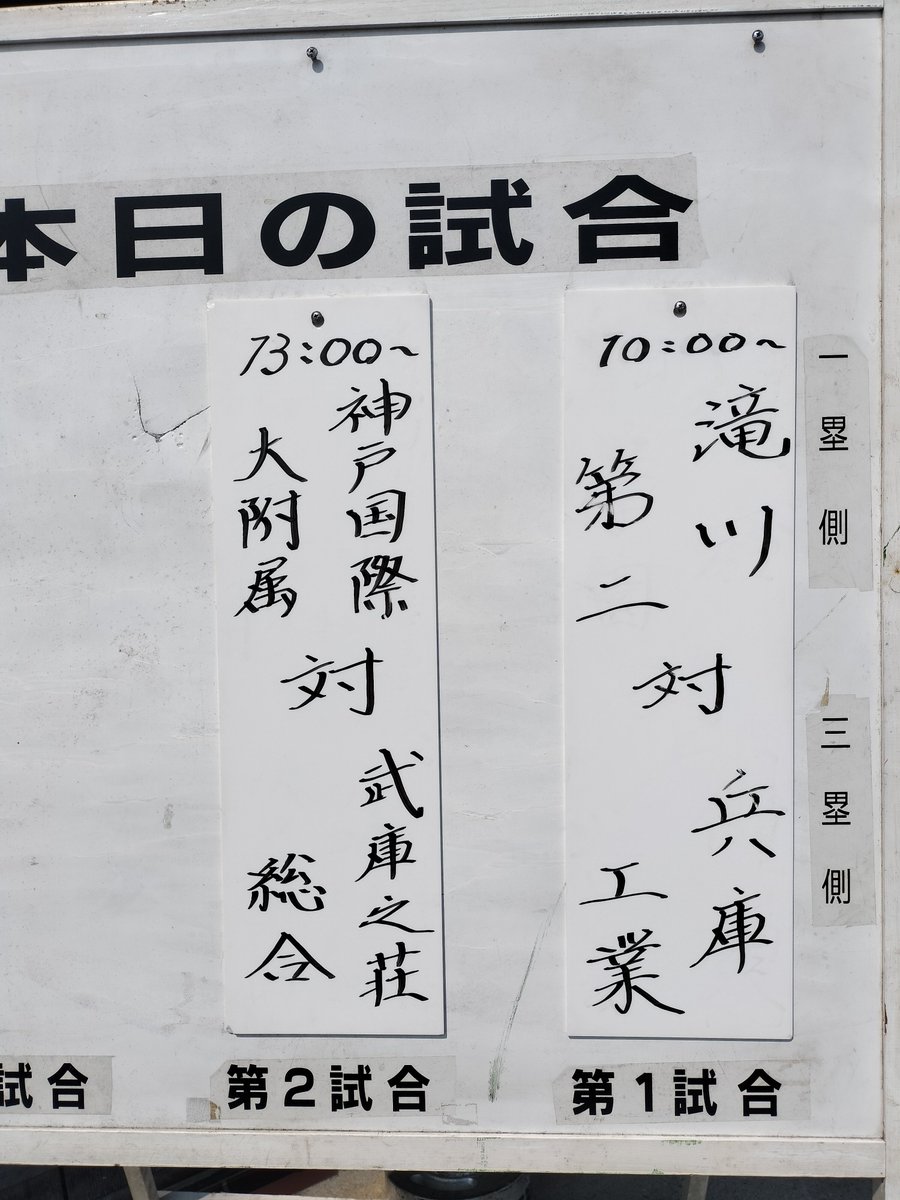 本日の試合
一塁側
三塁側
10:00~
滝川
第二
対
兵庫
工業
第1試合
13:00~
神戸国際
大附属
対
武庫之荘
総合
第2試合
試合